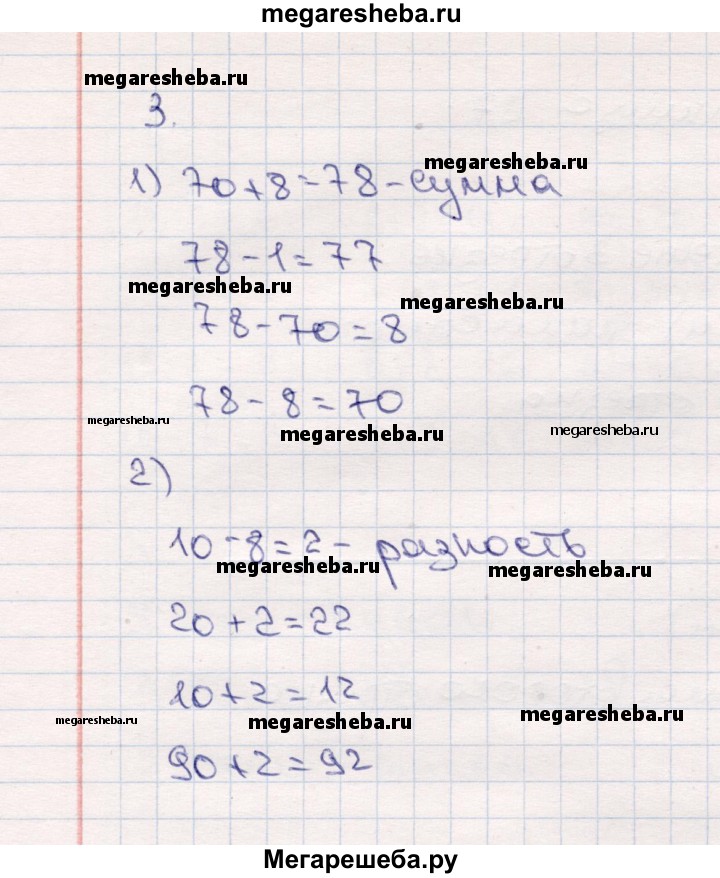 megaresheba.ru
megaresheba.ru
3.
megaresheba.ru
1) 70+8=78-сумма
78-1=77
megaresheba.ru
megaresheba.ru
78-70=8
78-8=70
megaresheba.ru
megaresheba.ru
megaresheba.ru
2)
10-8=2- разность
megaresheba.ru
megaresheba.ru
20+2=22
10+2=12
megaresheba.ru
megaresheba.ru
megaresheba.ru
90+2=92
Мегарешеба.ру